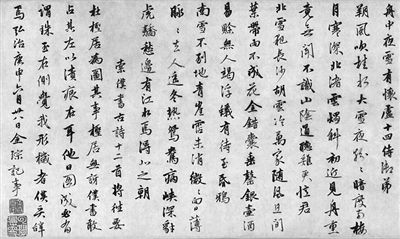 舟中夜雪有懷盧十四侍御弟
朔風吹桂水大雪夜紛紛暗度南樓
月寒深北渚雲燭斜初近見舟重
竟無聞不識山陰道聽雞更憶君
北雪犯長沙胡雲冷萬家隨風且間
葉帶雨不成花金錯囊垂罄銀壺酒
易賒無人竭浮蟻有待至昏鴉
南雪不到地青崖霑未消微微向日薄
脉脉去人遥冬熱鴛鴦病峽深豺
虎驕愁邊有江水焉得北之朝
索僕書古詩十二首將往要
杜檉居為圖其事檉居無訝僕書敢
占其左以潰痕在耳他日圖成必有
謂珠玉在側覺我形穢者僕
焉弘治庚申六月廿八日金琮記事